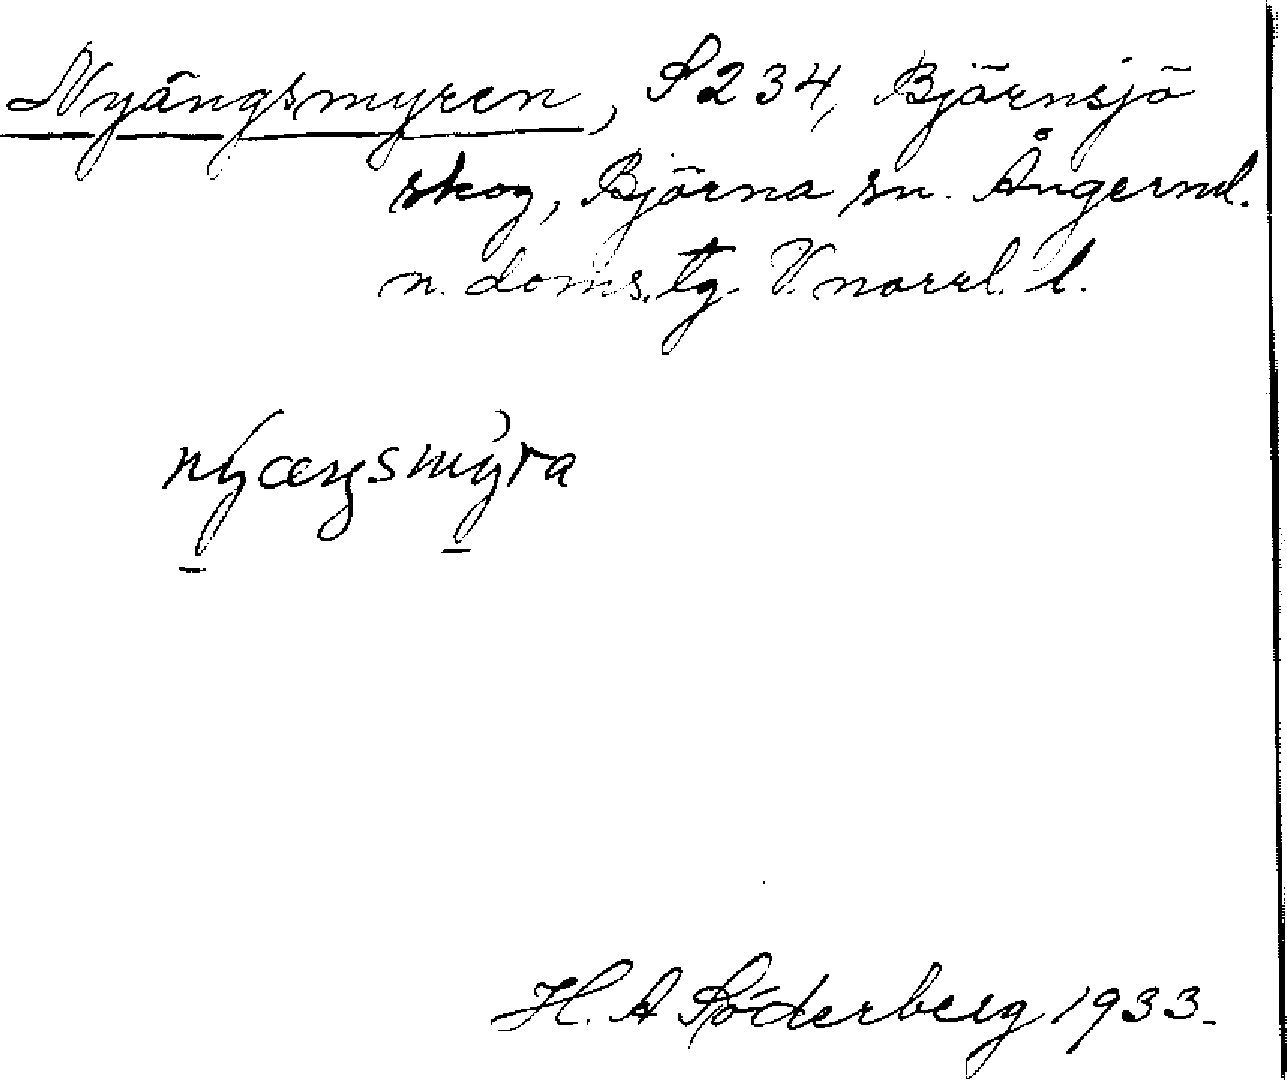 Nyängsmyren, S 234, Björnsjö
skog, Björna sn. Ångerml.
n. doms. tg V. norrl. l.
nýæŋsmy̆ra
H. A Söderberg 1933.